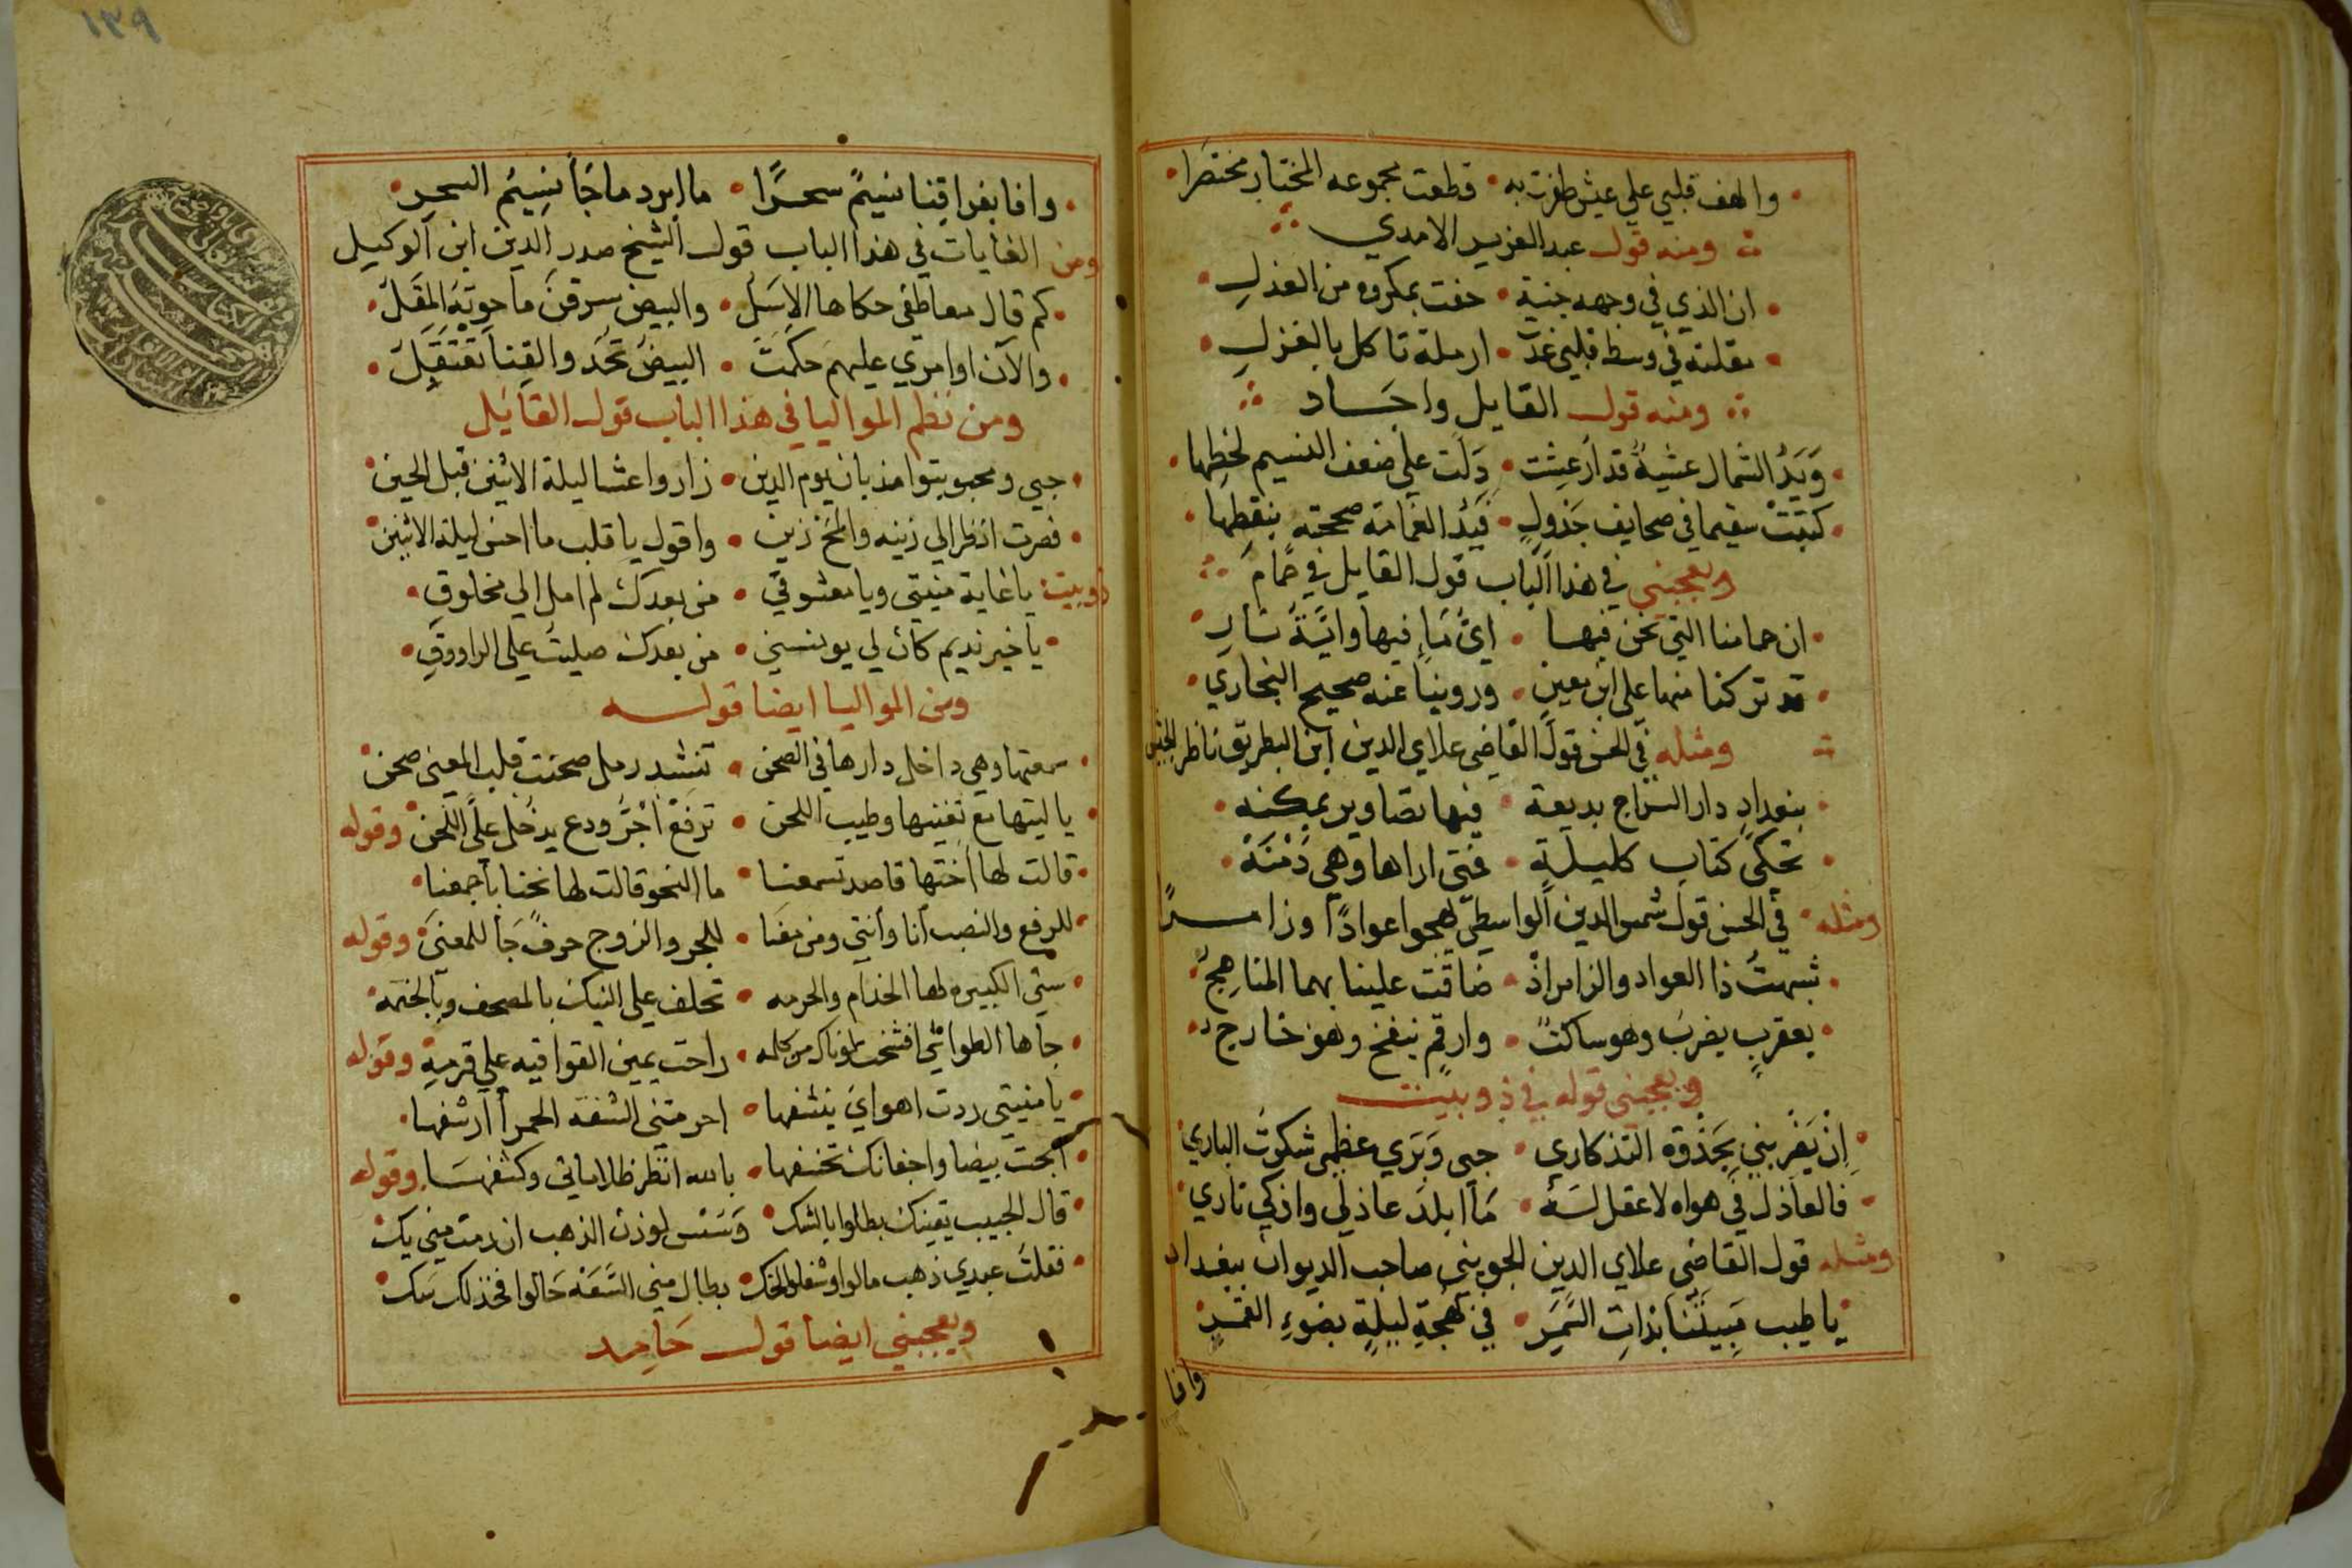 والهف قلبي علي عيش ظفرت به • قطعت مجموعه المختار مختصرا
ومنه قول عبد العزيز الامدي
ان الذي في وجهه جنية • حفت بمكروه من العذل
مقلته في وسط قلبي غدت • ارملة تاكل بالغزل
ومنه قول القايل واجاد
ويد الشمال عشية قد ارعشت • دلت علي ضعف النسيم لخطها
كتبت سقيما في صحايف جدول • فيد الغمامة صححته بنقطها
ويعجبني في هذا الباب قول القايل في حمام
ان حمامنا التي نحن فيها • اي ما فيها واية نار
قد تركنا منها علي ابن معين • وروينا عنه صحيح البخاري
ومثله في الحسن قول القاضي علاي الدين ابن البطريق ناظر الجيش
ببغداد دار السراج بديعة • فيها تصاوير بمكنه
تحكي كتاب كليلة • فمتي اراها وهي دمنه
ومثله في الحسن قول شمس الدين الواسطي يهجوا عوادا وزامرا
شبهت ذا العواد والزامر اذ • ضاقت علينا بهما المناهج
بعقرب يضرب وهو ساكت • وارقم ينفخ وهو خارج
ويعجبني قوله في ذوبيت
اذ يغربني بجذوة التذكاري • حبي وبري عظمي شكوت الباري
فالعاذل في هواه لا عقل له • ما ابلد عاذلي واذكي ناري
ومثله قول القاضي علاي الدين الجويني صاحب الديوان ببغداد
يا طيب مبيتنا بذات السمر • في بهجة ليلة بضوء القمر
وافا
١٣٩
وافا بفراقنا نسيم سحرا • ما ابرد ما جا نسيم السحر
ومن الغايات في هذا الباب قول الشيخ صدر الدين ابن الوكيل
كم قال معاطفي حكاها الاسل • والبيض سرقن ما حوته المقل
والآن اوامري عليهم حكمت • البيض تحد والقنا تعتقل
ومن نظم المواليا في هذا الباب قول القايل
حبي ومحبوبتوا مذ بان يوم الدين • زاروا عشا ليلة الاثنين قبل الحين
فصرت انظر الي زينه والمخ زين • واقول يا قلب ما احسن ليلة الاثنين
ذوبيت يا غاية منيتي ويا معشوقي • من بعدك لم امل الي مخلوق
يا خير نديم كان لي يونسني • من بعدك صليت علي الراووق
ومن المواليا ايضا قوله
سمعتها وهي داخل دارها في الصحن • تنشد رمل صحنت قلب المعني صحن
يا ليتها مع تغنيها وطيب اللحن • ترفع اجر ودع يدخل علي اللحن وقوله
قالت لها اختها قاصد تسمعنا • ما النحو قالت لها نحنا باجمعنا
للرفع والنصب انا وانتي ومن معنا • للجر والزوج حرف جا للمعني وقوله
ستي الكبيره لها الخدام والحرمه • تحلف علي النيك بالمصحف وبالختمه
جاها الطواشي من كلمه • راحت يمين القوا قيه علي قرمة وقوله
يا منيتي ردت اهواي ينشفها • احرمتني الشفة الحمرا ارشفها
ابحت بيضا واجفانك تخسفها • بالله انظر ظلاماتي وكشفها وقوله
قال الحبيب بطلوا بالشك • لوزن الذهب ان رمت مني يك
فقلت عبدي ذهب مالوا • بطال مني
ويعجبني ايضا قول حامد